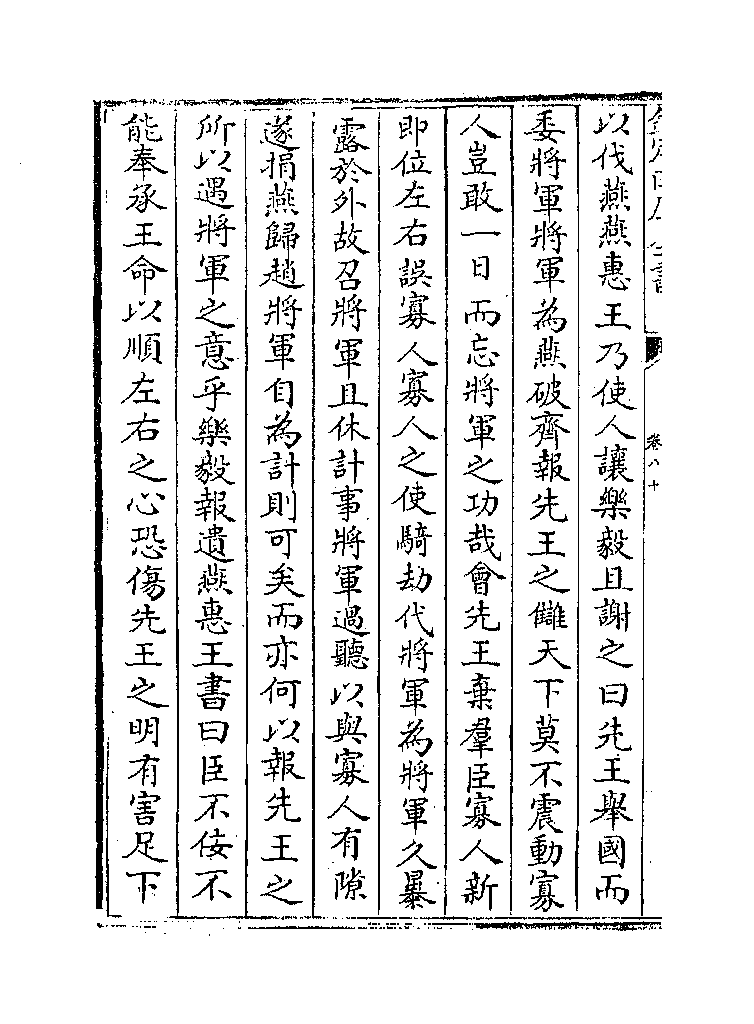 以伐燕燕惠王乃使人讓樂毅且謝之曰先王舉國而
委將軍將軍為燕破齊報先王之讎天下莫不震動寡
人豈敢一日而忘將軍之功哉會先王棄羣臣寡人新
即位左右誤寡人寡人之使騎劫代將軍為將軍久暴
露於外故召將軍且休計事將軍過聽以與寡人有隙
遂捐燕歸趙將軍自為計則可矣而亦何以報先王之
所以遇將軍之意乎樂毅報遺燕惠王書曰臣不佞不
能奉承王命以順左右之心恐傷先王之明有害足下
卷八十